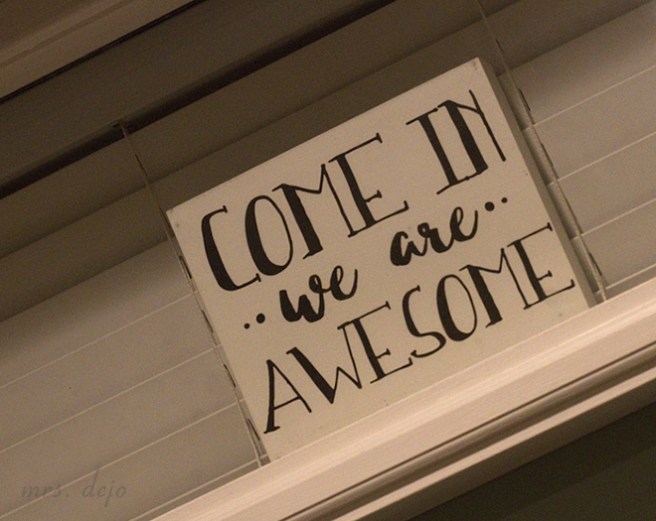 COME IN
..we are..
AWESOME
mrs. dojo